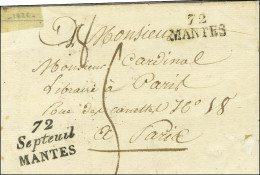 A Monsieur
72
MANTES
Monsieur Cardinal
Libraire à Paris
Rue des canettes N° 18
A Paris
72
Septeuil
MANTES